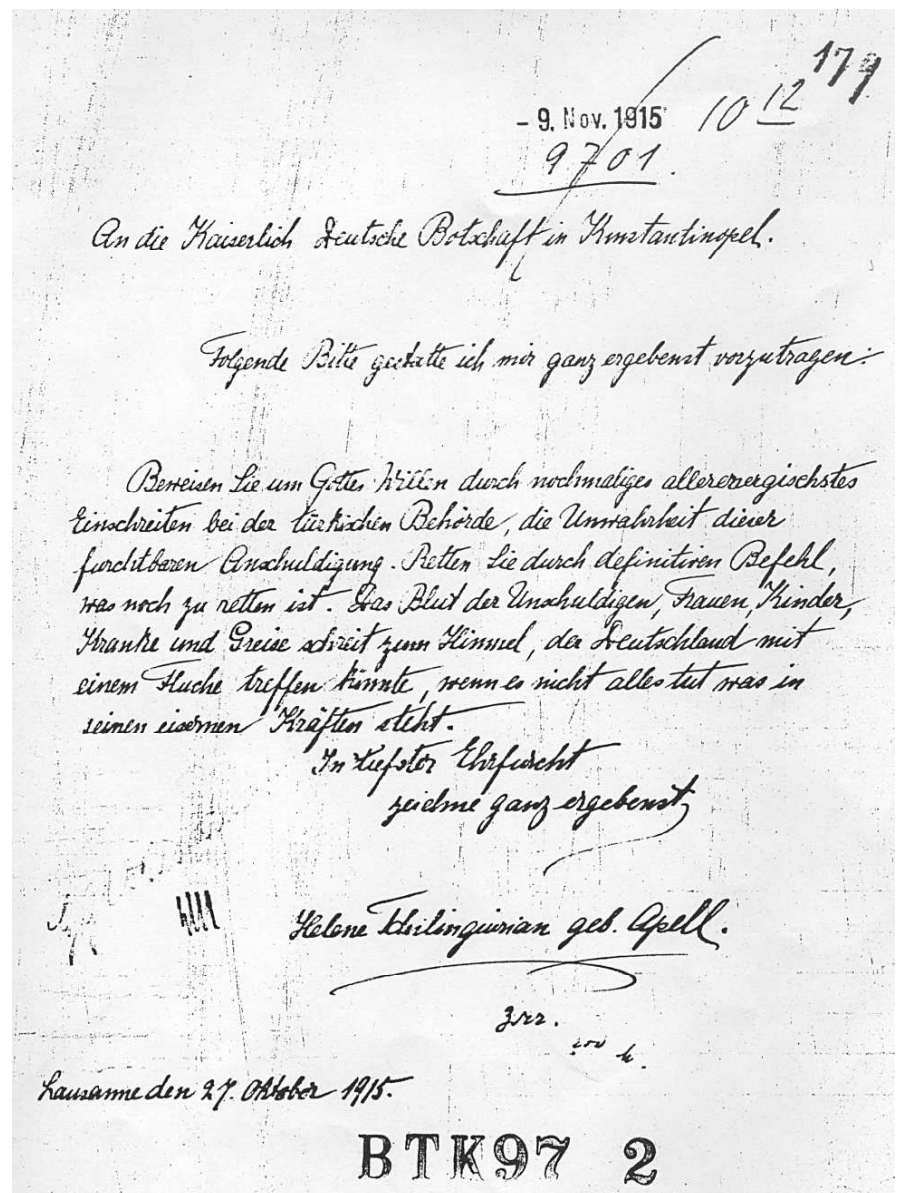 179
- 9. Nov. 1915 10 12
9701.
An die Kaiserlich Deutsche Botschaft in Konstantinopel.
Folgende Bitte gestatte ich mir ganz ergebenst vorzutragen:
Beweisen Sie um Gottes Willen durch nochmaliges allerenergischstes
Einschreiten bei der türkischen Behörde, die Unwahrheit dieser
furchtbaren Anschuldigung. Retten Sie durch definitiven Befehl,
was noch zu retten ist. Das Blut der Unschuldigen, Frauen, Kinder,
Kranke und Greise schreit zum Himmel, der Deutschland mit
einem Fluche treffen könnte, wenn es nicht alles tut was in
seinen eisernen Kräften steht.
In tiefster Ehrfurcht
zeichne ganz ergebenst
Helene Tchilinguirian geb. Apell.
Lausanne den 27. Oktober 1915.
BTK97 2